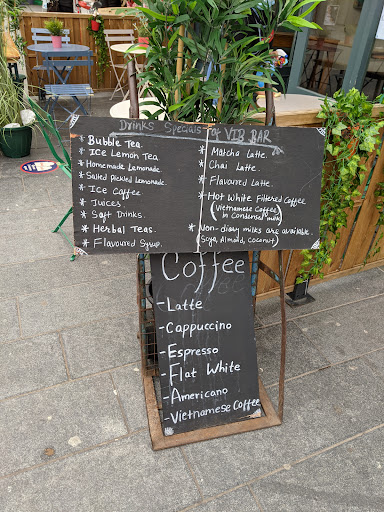 Drinks Specials of VIB BAR
* Bubble Tea
* Ice Lemon Tea
* Homemade Lemonade
* Salted pickled Lemonade
* Ice Coffee
* Juices.
* Soft Drinks.
* Herbal Teas.
* Flavoured Syrup.
* Matcha latte.
* Chai latte.
* Flavoured latte.
* Hot White Filtered Coffee
(Vietnamese Coffee
in Condensed milk)
* Non-diary milks are available.
(Soya, Almond, Coconut)
Coffee
- Latte
- Cappuccino
- Espresso
- Flat White
- Americano
- Vietnamese Coffee